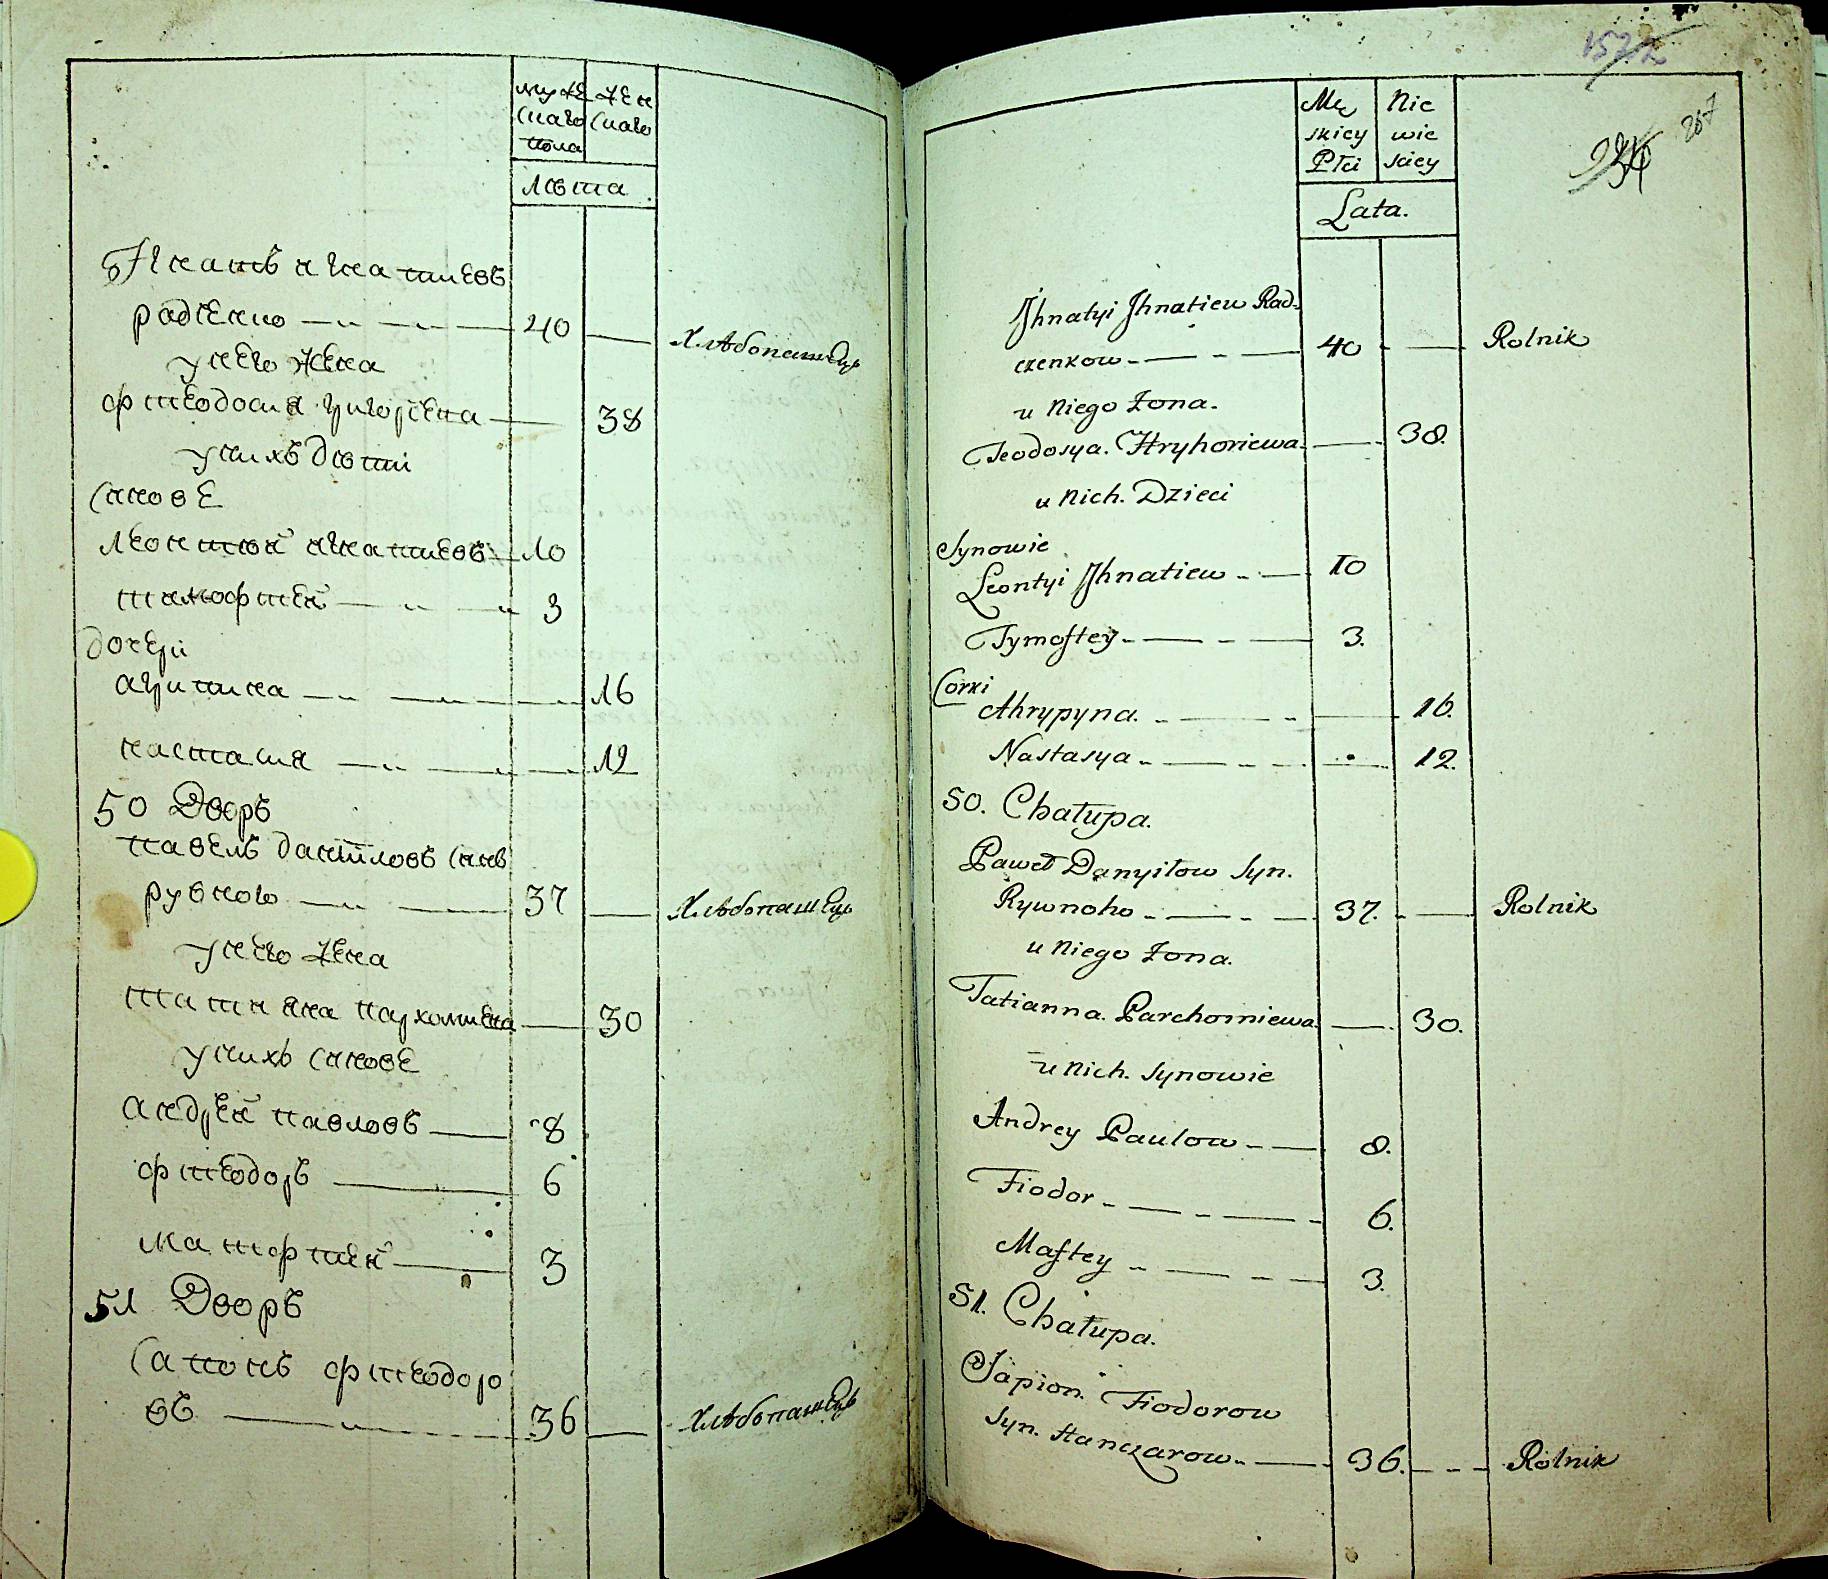 муже женскаго
скаго
пола
лѣта
Игнатъ игнатиевъ
радченко 40 Хлѣбопашецъ
у него жена
фтеодосия григориева 38
у нихъ дѣти
синове
леонтий игнатиевъ 10
тимофтей 3
дочери
агрипина 16
настасия 12
50 Дворъ
павелъ даниловъ синъ
рувного 37 Хлѣбопашецъ
у него жена
татияна пархомиева 30
у нихъ синове
андрей павловъ 8
фтеодоръ 6
матфтей 3
51 Дворъ
Сапонъ фтеодоро
въ 36 Хлѣбопашецъ
Mę Nie
skiey wie
Płci skiey
Lata.
267
Jhnatyi Jhnatiew Rad-
czenkow 40 Rolnik
u Niego Żona.
Teodosya. Hryhoriewa. 38.
u Nich. Dzieci
Synowie
Leontyi Jhnatiew 10
Tymoftey 3.
Corki
Ahrypyna. 16.
Nastasya 12.
50. Chałupa.
Paweł Danyiłow Syn.
Rywnoho 37. Rolnik
u Niego Żona.
Tatianna. Parchomiewa. 30.
u Nich. Synowie
Andrey Pawlow 8.
Fiodor 6.
Maftey 3.
51. Chałupa.
Sapion. Fiodorow
Syn. Hanczarow 36. Rolnik